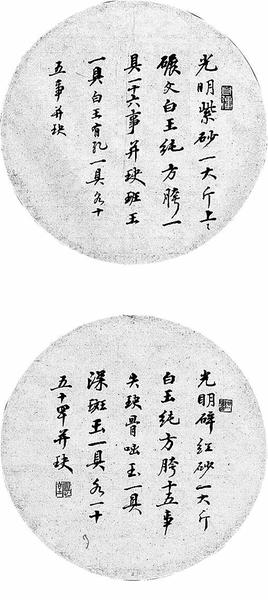 光明紫砂一大斤上〻
碾文白玉純方胯一
具一十六事并玦斑玉
一具白玉有孔一具各十
五事并玦
光明碎紅砂一大斤
白玉純方胯十五事
失玦骨咄玉一具
深斑玉一具各一十
五事并玦